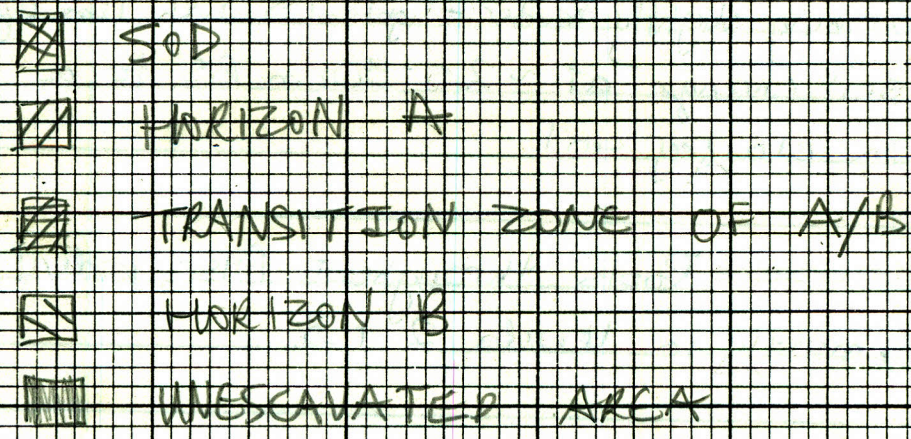 SOD
HORIZON A
TRANSITION ZONE OF A/B
HORIZON B
UNESCAVATED AREA